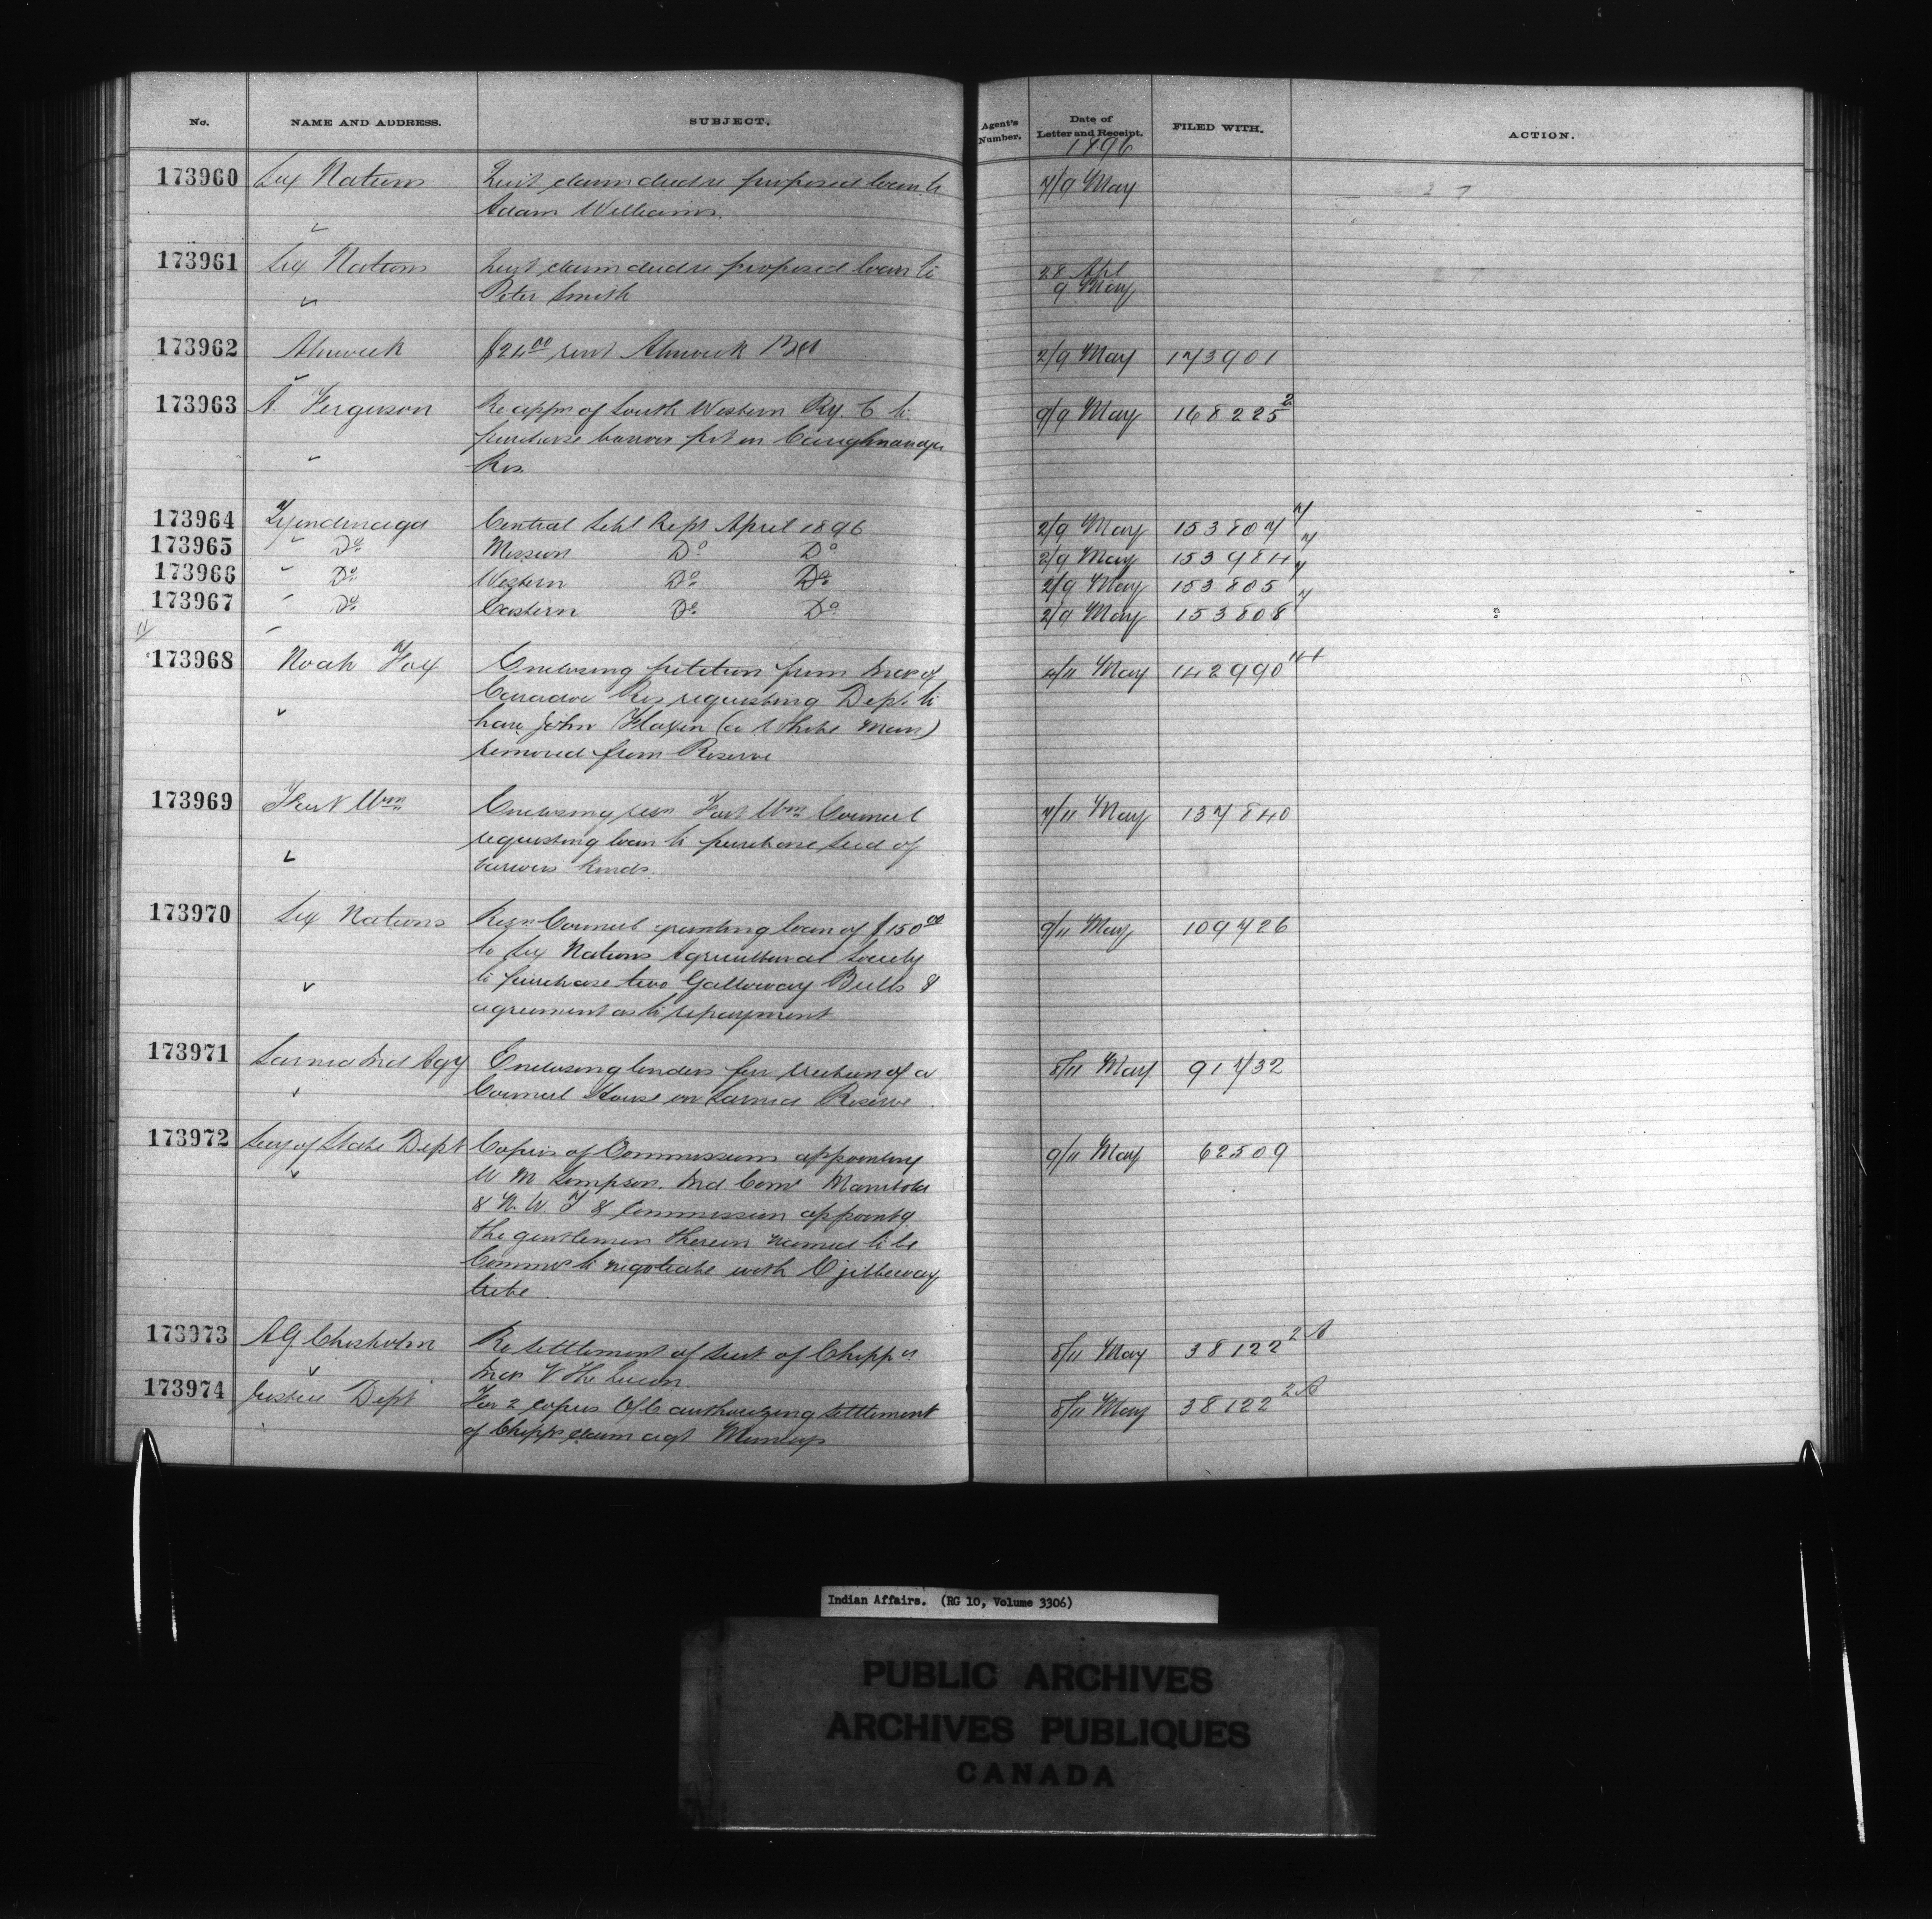 No. NAME AND ADDRESS. SUBJECT. Agent's Number. Date of Letter and Receipt. FILED WITH. ACTION.
1896
173960 Six Nations Quit claim deed re proposed loan to 7/9 May
Adam Williams.
173961 Six Nations Quit claim deed re proposed loan to 28 Apl
Peter Smith 9 May
173962 Alnwick $24.00 rent Alnwick 2/9 May 173901
173963 A. Ferguson Re appn of South Western Ry. C to 9/9 May 168225 2
purchase barrow pit on Caughnawaga
Res.
173964 Tyendinaga Central Schl Rept April 1896 2/9 May 153807 7
173965 Do Mission Do Do 2/9 May 153984 7
173966 Do Western Do Do 2/9 May 153805 7
173967 Do Eastern Do Do 2/9 May 153808 7
11
173968 Noah Fox Enclosing petition from Inds of 4/11 May 142990
Caradoc Res requesting Dept. to
have John Flaxen (a White Man)
removed from Reserve
173969 Fort Wm Enclosing resn Fort Wm Council 7/11 May 137840
requesting loan to purchase seed of
various kinds.
173970 Six Nations Resn Council granting loan of $150.00 9/11 May 109726
to Six Nations Agricultural Society
to purchase two Galloway Bulls &
agreement as to repayment
173971 Sarnia Ind Agy Enclosing tenders for erection of a 8/11 May 91732
Council House on Sarnia Reserve.
173972 Secy of State Dept Copies of Commissions appointing 9/11 May 62509
W M Simpson. Ind. Comr Manitoba
& N. W. T & Commission appointg
the gentlemen therein named to be
Commrs to negotiate with Ojibbeway
tribe.
173973 A G Chisholm Re settlement of suit of Chippa 8/11 May 38122 2 A
Inds V The Queen
173974 Justice Dept For 2 copies O/C authorizing settlement 8/11 May 38122 2 A
of Chippa claim agt Munceys
Indian Affairs. (RG 10, Volume 3306)
PUBLIC ARCHIVES
ARCHIVES PUBLIQUES
CANADA